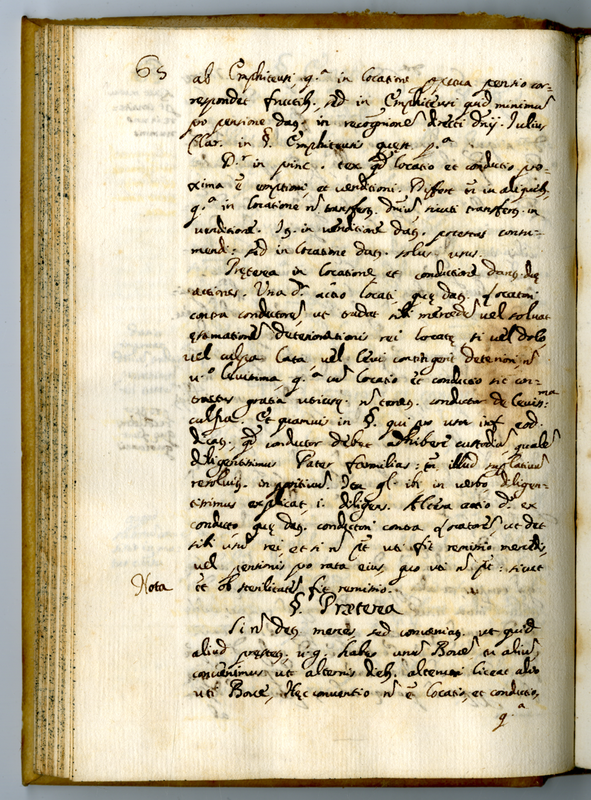 65
ab Emphiteusi, q.ª in locatione pensio cor-
respondet fructib., sed in Emphiteusi quid minimum
pro pensione dat. in recognitione directi Dnij. Julius
Clar. in §. Emphiteusis quest. p.ª
D.r in princ. tex. qd locatio et conductio pro-
xima ē emptioni et venditioni. Differt in aliquib.
q.ª in locatione n transfert. Dniu sicuti transfert. in
venditione. It. in venditione dat. potestas consu-
mendi: sed in locatione dat. solus usus.
Præterea in locatione et conductione dant. duę
actiones. Una dr. actio locati, quę dat. locatori
contra conductore ut tradat sibi mercede vel solvat
ęstimatione deteriorationis rei locatę, si vel dolo,
vel culpa lata vel levi contingerit deteriori, n
v.º levissima q.ª cu locatio et conductio sit con-
tractus gratia utriusq. n tenet. conductor de levis:ma
culpa. Et quamvis in §. qui pro usu inf. eod.
dicat. qd conductor debet adhibere custodia quale
diligentissimus Pater familias: tn illud suplativu
resolvit. in positivu. Ita gl. ibi in verbo diligen-
tissimus explicat i. diligens. Altera actio dr. ex
conducto quę dat. conductori contra locatore, ut det
sibi usu rei, et si n pt uti fit remissio mercedis,
vel pensionis pro rata eius, quo uti n pt: sicut
Nota et ob sterilitate fit remissio.
§ Præterea
Si n det. merces, sed conveniat. ut quid
aliud prestet. v.g. habeo unu Bove tu aliu,
convenimus ut alternis dieb. alteruri liceat alio
uti Bove, Hęc conventio n ē locatio, et conductio,
q.ª